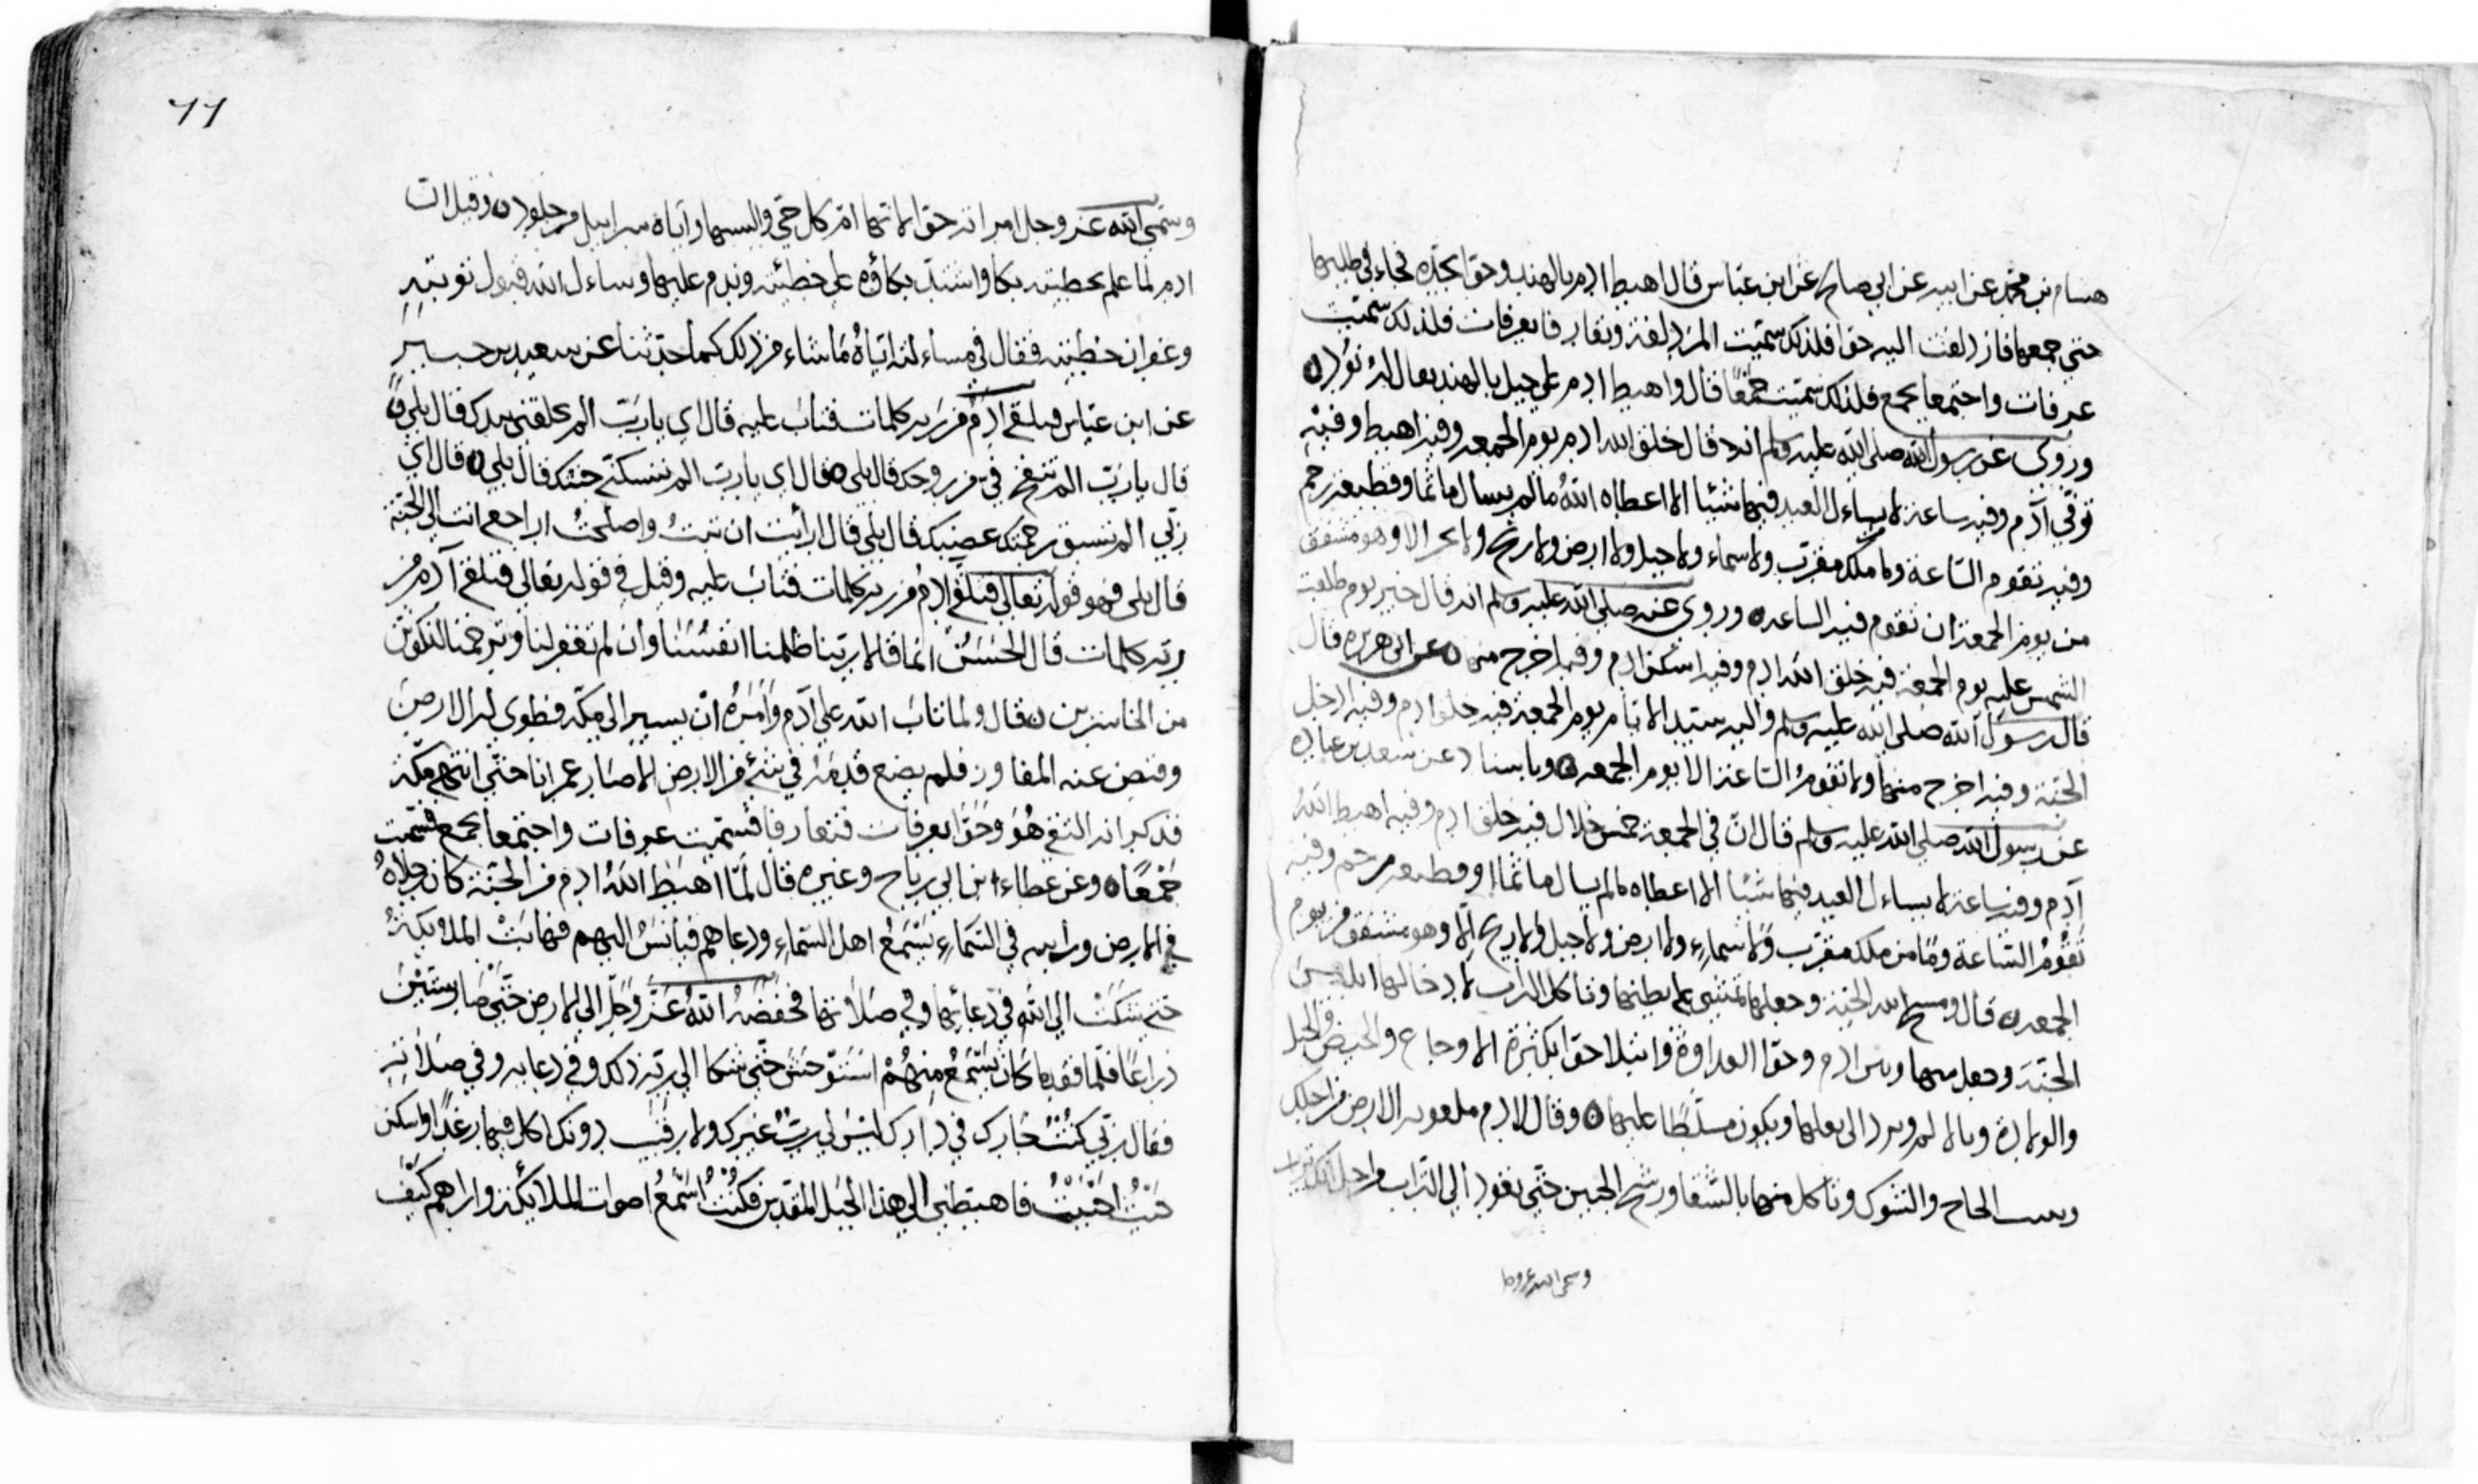 هشام بن محمد عن ابيه عن ابي صالح عن ابن عباس قال اهبط ادم بالهند وحوا بجده فجاء في طلبها
حتي جمعها فازدلفت اليه حوا فلذلك سميت المزدلفة وتعارفا بعرفات فلذلك سميت
عرفات واجتمعا بجمع فلذلك سميت جمعًا قال واهبط ادم علي جبل بالهند يقال له نُوْد ۝
وروي عن رسول الله صلى الله عليه وسلم انه قال خلق الله ادم يوم الجمعه وفيه اهبط وفيه
توفّي آدم وفيه ساعة لا يساءل العبد فيها شيئا الا اعطاه اللهُ ما لم يسال ماثما وقطيعة رحم
وفيه تقوم السّاعة وما ملك مقرب ولا سماء ولا جبل ولا ارض ولا ريح ولا بحر الا وهو مشفق
من يوم الجمعة ان تقوم فيه الساعه ۝ وروي عنه صلى الله عليه وسلم انه قال خير يوم طلعت
الشمس عليه يوم الجمعة فيه خلق الله ادم وفيه اسكن ادم وفيه اخرج منها ۝ عن ابي هريره قال
قال رسول الله صلى الله عليه وسلم واليه سيّد الايام يوم الجمعة فيه خلق ادم وفيه ادخل
الجنة وفيه اخرج منها ولا تقومُ السّاعة الا يوم الجمعه ۝ وباسناد عن سعد بن عباده
عن رسول الله صلى الله عليه وسلم قال انّ في الجمعة خمس خلال فيه خلق ادم وفيه اهبط اللهُ
آدم وفيه ساعة لا يساءل العبد فيها شيئا الا اعطاه ما لم يسال ماثما او قطيعه رحم وفيه
تَقُوْمُ السّاعة وما من ملك مقرب ولا سماء ولا ارض ولا جبل ولا ريح الّا وهو مشفق من يوم
الجمعه ۝ قال ومسخ الله الحية وجعلها تمشي علي بطنها وتاكل التراب لادخالها ابليس
الجنّة وجعل بينها وبين ادم وحوا العداوة وابتلا حوا بكثرة الاوجاع والحيض والحبل
والولادة وبالالم وبرد الى بعلها ويكون مسلّطًا عليها ۝ وقال لادم ملعونه الارض من اجلك
وينبت الحاج والشوك وتاكل منها بالشقا ورشح الجبين حتّي تعود الي التراب من اجل انك تراب
وسمى الله عز وجل
٦٦
وسَمّي الله عز وجل امراته حوّا لانها امّ كل حيّ والبسها وايّاه سرابيل من جلود ۝ وقيل ان
ادم لما علم بخطيئته بكا واشتدّ بكاؤه علي خطيئته وندم عليها وساءل الله قبول توبته
وغفران خطيئته فقال في مساءلته ايّاهُ مَا شاء من ذلك كما حدّثنا عن سعيد بن جبير
عن ابن عباس فتلقى آدَمُ من رَبه كلمات فتابَ عليه قال اي يا ربّ الم تخلقني بيدك قال بلي ۝
قال يا ربّ الم تنفخ فيّ من روحك قال بلي ۝ قال اي يا ربّ الم تسكنّي جنتك قال بلي ۝ قال اي
ربّي الم تسبق رحمتك غضبك قال بلي قال ارايت ان تبتُ واصلحتُ اراجع انت الي الجنة
قال بلى فهو قوله تعالى فتلقى ادمُ من ربه كلمات فتابَ عليه وقيل في قوله تعالى فتلقى آدم من
ربّه كلمات قال الحَسَنُ انّما قالا ربّنا ظلمنا انفسَنا وان لم تغفر لنا وترحمنا لنكونن
من الخاسرين ۝ قال ولما تاب الله علي آدم وامَرهُ ان يسير الي مكّة فطوى له الارض
وقبض عنه المفاوز فلم يضع قدمَه في شيء من الارض الا صار عمرانا حتّي انتهى مكّة
فذكر انه التقي هُوَ وحَوّا بعرفات فتعارفا فسُمّيت عرفات واجتمعا بجمع فسُمّيت
جَمْعًا ۝ وعن عطاء ابن ابي رباح وغيره قال لمّا اهبَط اللهُ ادم من الجنّة كان رجلاهُ
في الارض ورأسه في السّماءِ يَسْمَعُ اهل السّماءِ ودعاهم فيأنَسُ اليهم فهابَتْ الملائكةُ
حتى شَكَتْ الي الله في دعائها وفي صَلاتها فخفضَهُ اللهُ عزّ وجلّ الي الارض حَتّي صَارَ ستّينَ
ذراعًا فلما فقد ما كانَ يَسْمَعُ منهُمْ استوحشَ حتّي شكا الي ربّه ذلك وفي دعايه وفي صلاته
فقال ربّي كنتُ جَارك في دارك ليْسَ لي ربّ غيرك ولا رقيب دونك اكل فيها رغدًا واسكن
حَيثُ احبَبْتُ فاهبطني الي هذا الجبَل المقدّس فكُنْتُ اسْمَعُ اصوات الملائكة واراهم كيف